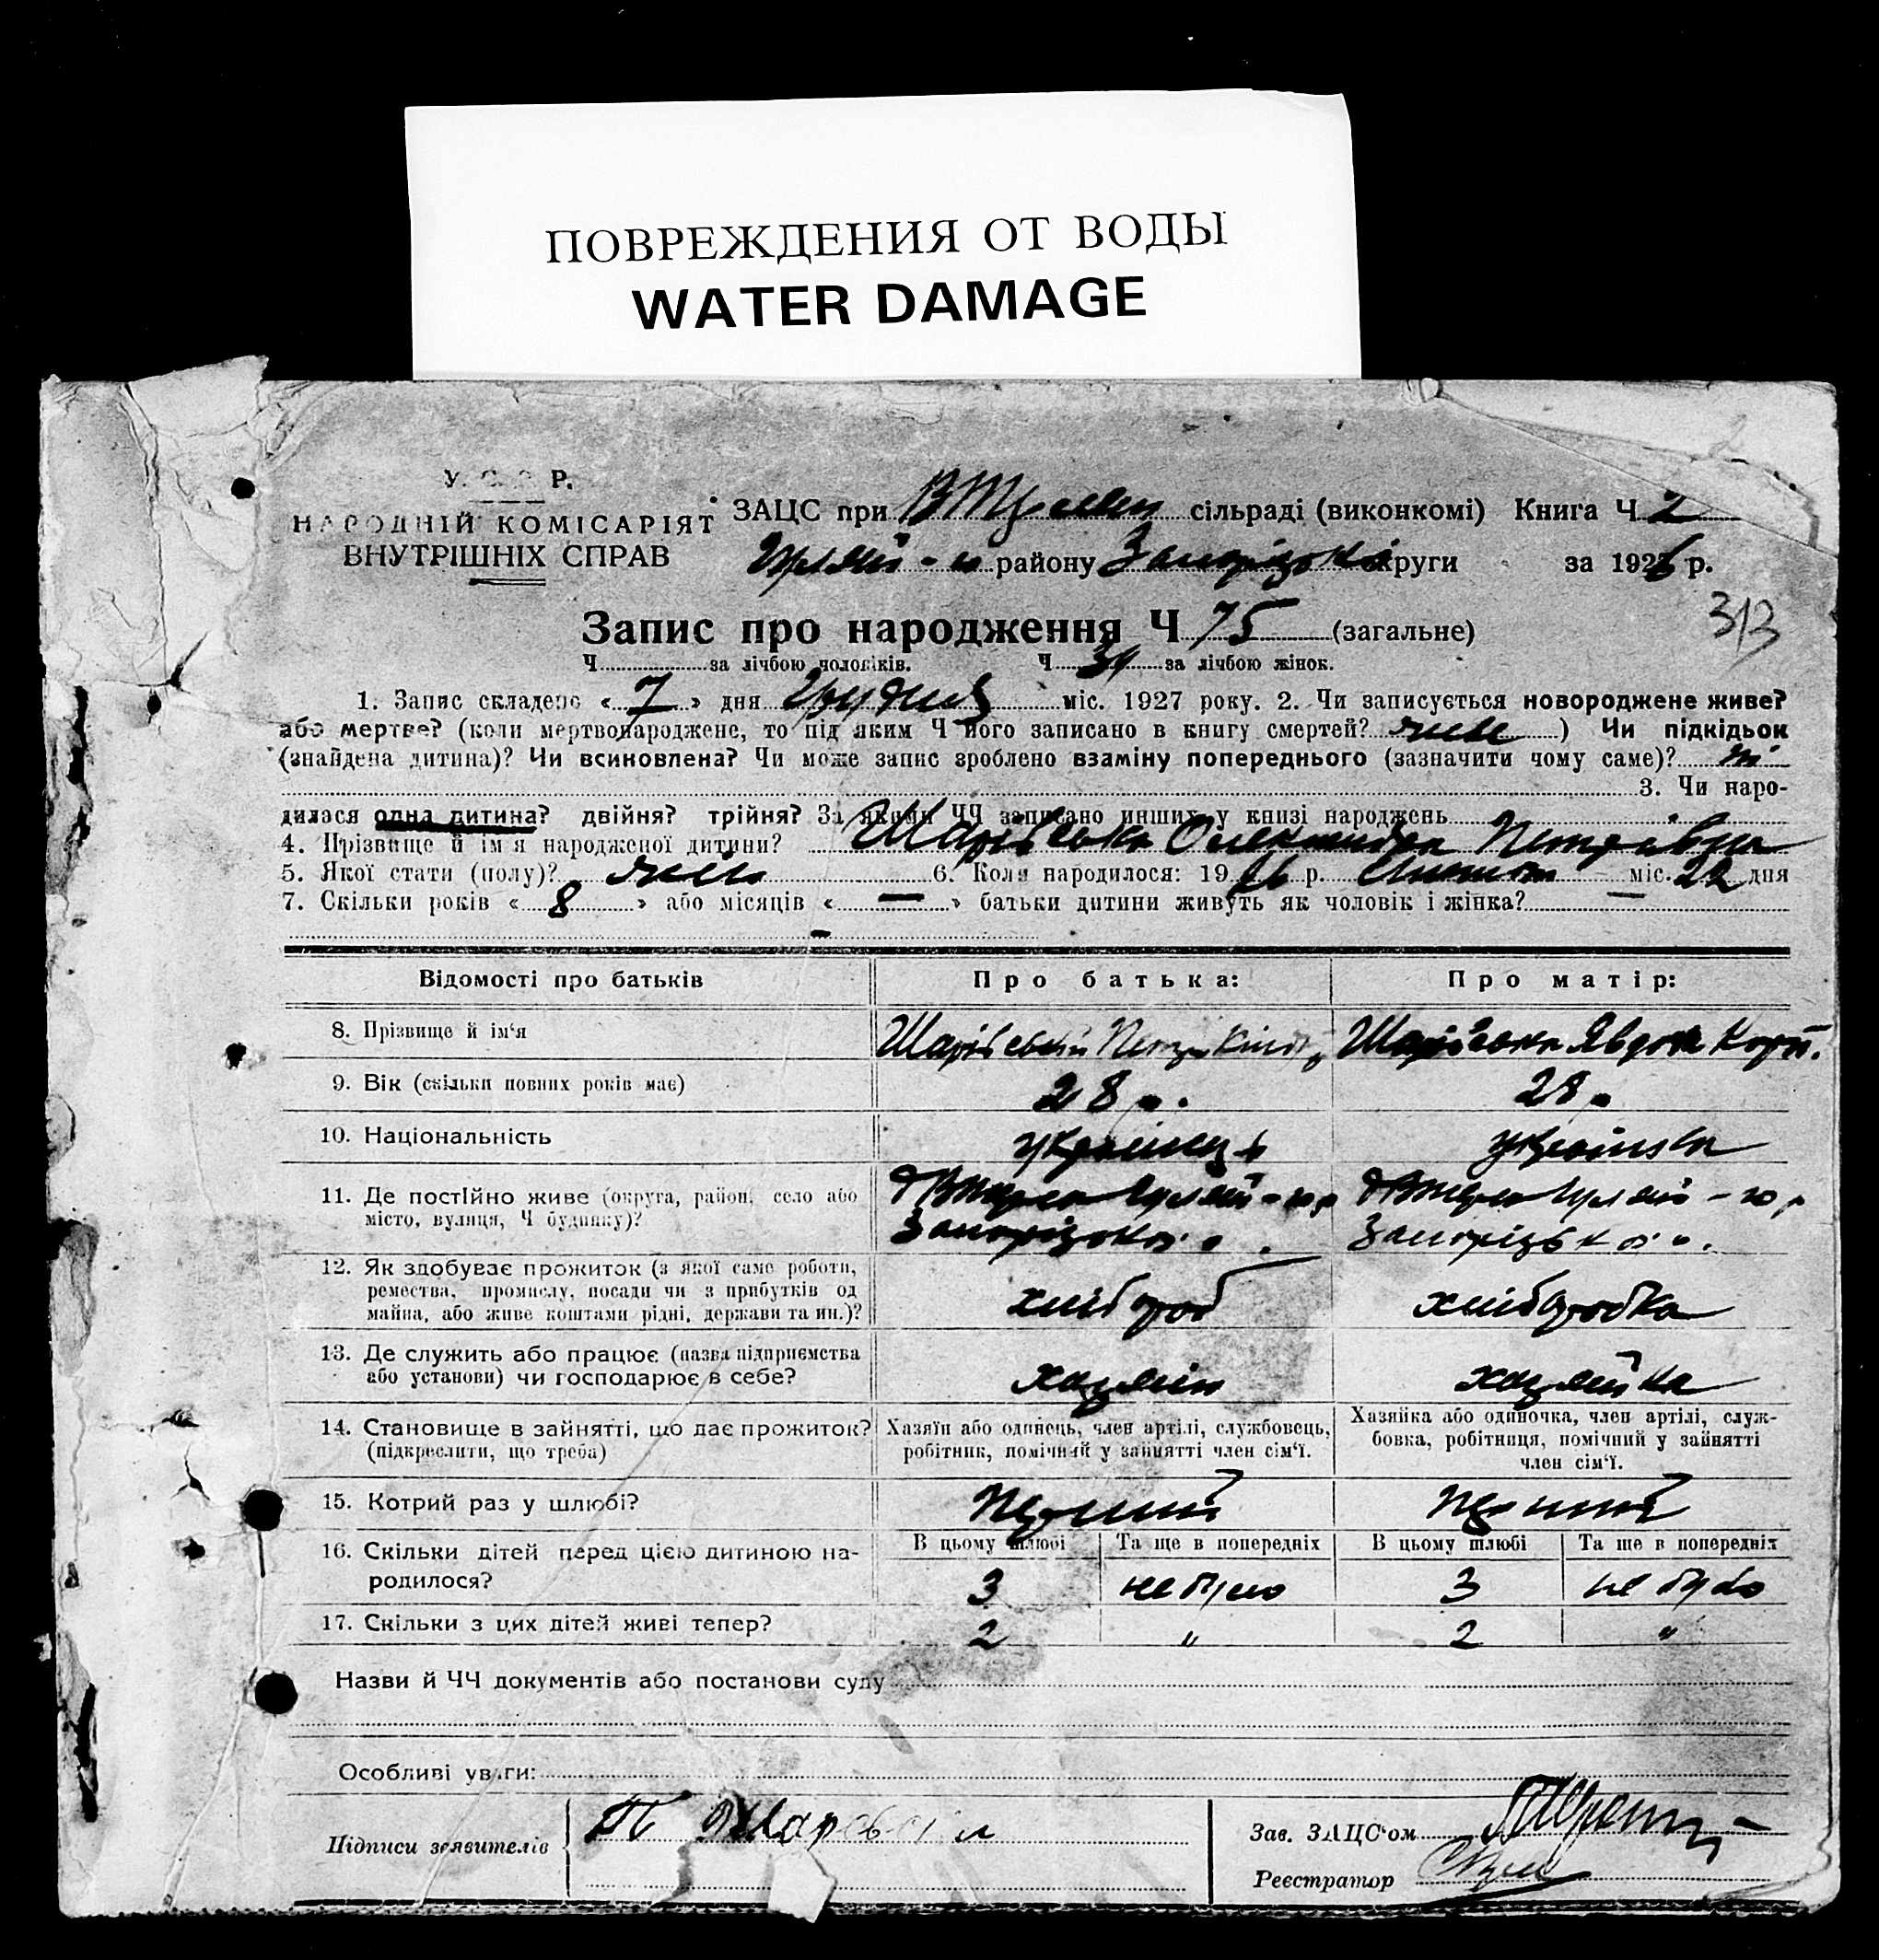 ПОВРЕЖДЕНИЯ ОТ ВОДЫ
WATER DAMAGE
У. С. С. Р.
НАРОДНІЙ КОМІСАРІЯТ
ВНУТРІШНІХ СПРАВ
ЗАЦС при сільраді (виконкомі) Книга Ч 2
району округи за 1926 р.
313
Запис про народження Ч 75 (загальне)
Ч за лічбою чоловіків. Ч 34 за лічбою жінок.
1. Запис складено « 7 » дня Грудня міс. 1927 року. 2. Чи записується новороджене живе?
або мертве? (коли мертвонароджене, то під яким Ч його записано в книгу смертей? живе ) Чи підкідьок
(знайдена дитина)? Чи всиновлена? Чи може запис зроблено взаміну попереднього (зазначити чому саме)? ні
3. Чи наро-
дилася одна дитина? двійня? трійня? За якими ЧЧ записано инших у книзі народжень
4. Прізвище й ім'я народженої дитини? Шарівська Олександра Петрівна
5. Якої стати (полу)? 6. Коли народилося: 1926 р. міс. 22 дня
7. Скільки років « 8 » або місяців « — » батьки дитини живуть як чоловік і жінка? —
Відомості про батьків Про батька: Про матір:
8. Прізвище й ім'я Шарівський Петро Шарівська Явдоха
9. Вік (скільки повних років має) 28 р. 28 р
10. Національність українець українка
11. Де постійно живе (округа, район, село або
місто, вулиця, Ч будинку)?
12. Як здобуває прожиток (з якої саме роботи,
ремества, промислу, посади чи з прибутків од
майна, або живе коштами рідні, держави та ин.)? хлібороб хліборобка
13. Де служить або працює (назва підприємства
або установи) чи господарює в себе? хазяін хазяйка
14. Становище в зайнятті, що дає прожиток?
(підкреслити, що треба)
Хазяїн або одинець, член артілі, службовець,
робітник, помічний у зайнятті член сім'ї.
Хазяйка або одиночка, член артілі, служ-
бовка, робітниця, помічний у зайнятті
член сім'ї.
15. Котрий раз у шлюбі? перший перший
В цьому шлюбі Та ще в попередніх В цьому шлюбі Та ще в попередніх
16. Скільки дітей перед цією дитиною на-
родилося? 3 не було 3 не було
17. Скільки з цих дітей живі тепер? 2 „ 2 „
Назви й ЧЧ документів або постанови суду
Особливі уваги:
Підписи заявителів
Зав. ЗАЦС'ом
Реєстратор